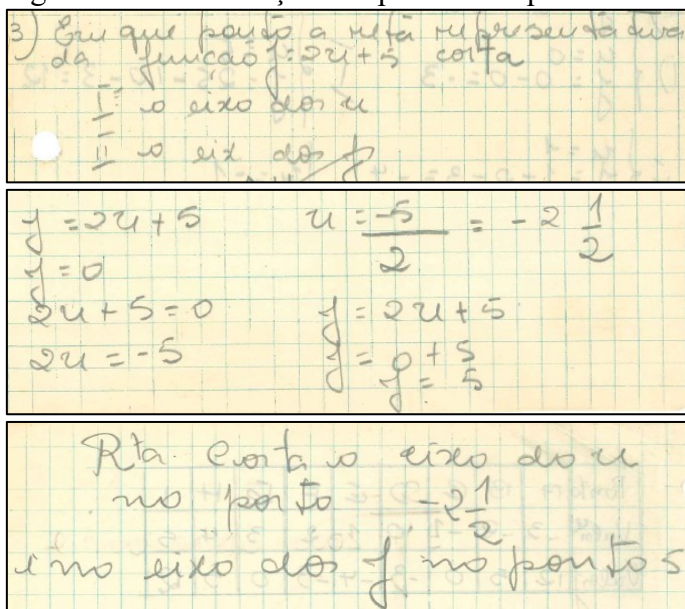 3) Em que ponto a reta representativa
da função y=2x+5 corta
I o eixo dos x
II o eix dos y
y = 2x + 5
y = 0
2x + 5 = 0
2x = -5
x = -5/2 = -2 1/2
y = 2x + 5
y = 0 + 5
y = 5
Rta. Corta o eixo do x
no ponto -2 1/2
e no eixo dos y no ponto 5